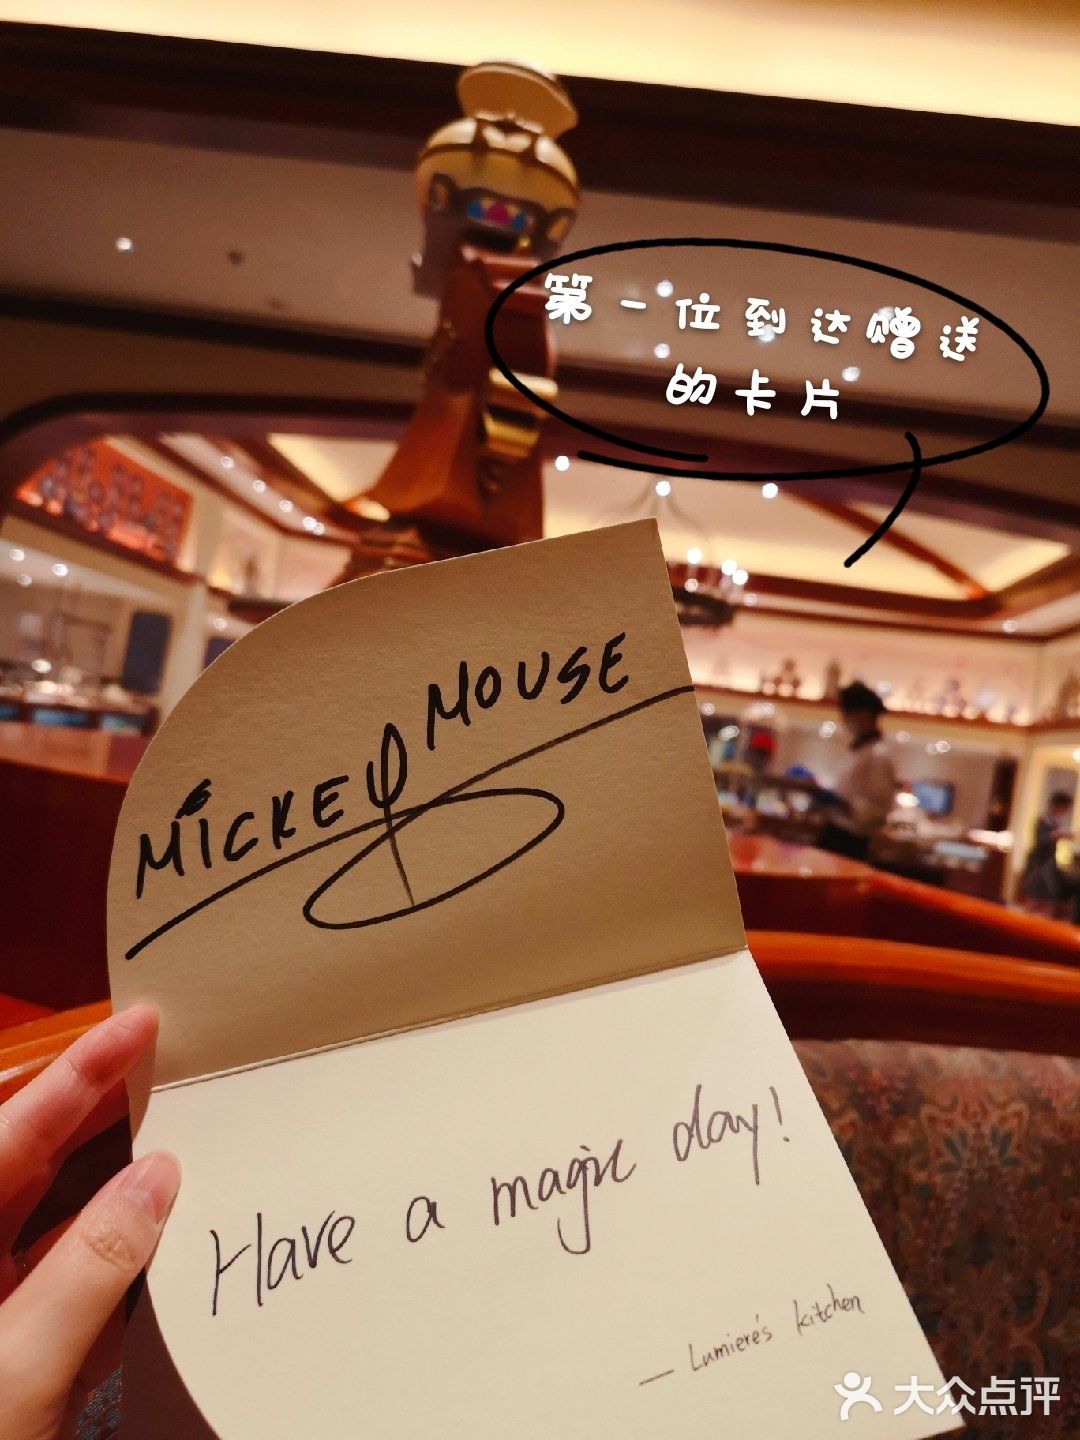 第一位到达赠送
的卡片
MICKEY MOUSE
Have a magic day!
— Lumiere's kitchen
大众点评